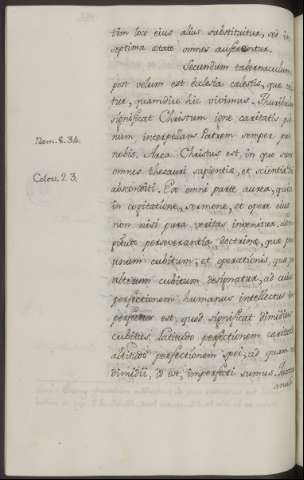 tim loco eius alius substituitur, sed in
septima etate omnes auferentur.
Secundum tabernaculum
post velum est Ecclesia celestis, que
tur, quamdiu hic vivimus. Thuribulum
significat Christum igne caritatis ple
Rom. 8. 34.
num interpellans Patrem semper pro
nobis. Arca Christus est, in quo sunt
omnes thezauri sapientia, et scientia Dei
Coloss. 2. 3.
absconditi. Ex omni parte aurea, quia
in cogitatione, sermone, et opere eius
non nisi pura veritas invenitur.
perseverantia doctrine, que per
unum cubitum, et operationis, que per
alterum cubitum designatur, ad cuius
perfectionem humanus intellectus im
perfectus est, quod significat dimidius
cubitus. Latitudo perfectionem caritatis
altitudo perfectionem spei, ad quam
dimidii, id est, imperfecti sumus.